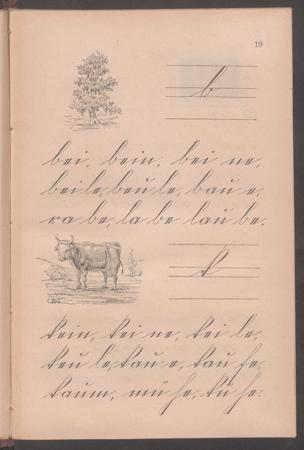 19
b
bei, bein, bei ne,
bei le, beu le, bau e,
ra be, la be lau be.
k
kein, kei ne, kei le,
keu le, kau e, kau fe,
kaum, mü he, kü he.